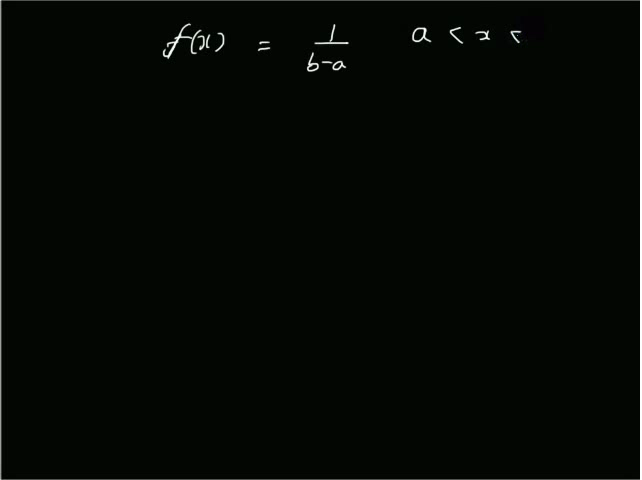 f(x) = 1/(b-a) a < x <